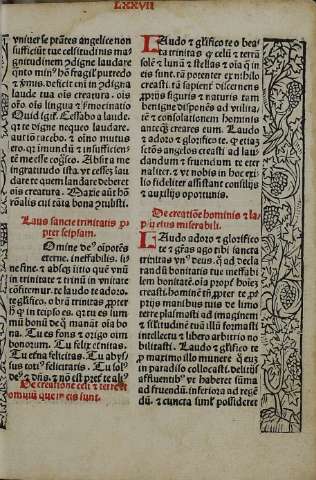 LXXVII
uniuerse ptātes angelice non
sufficiūt tue celsitudinis ma
gnitudinem ⁊digne laudare
qnto min⁹ hō fragil' putredo
⁊ ƥmis. deficit eni in ⁊digna
laude tua ois creatura. ois
ofo. ois lingua ⁊ sermocinatio
Quid igit. Cessabo a laude.
qr te digne nequeo laudare.
nūc tacebo. ⁊ oīno mutus
ero. qr immūdū ⁊ insufficien
tē meipse cogsco. Absit a me
ingratitudo ista. vt cessez lau
dare te quem laudare deberet
ois creatura. Maxie aūt hō
Laus sancte trinitatis ꝓ
pter seipsam.
Omine de⁹ oīpotēs
eterne. ineffabilis. si
ne fine. ⁊ absqz initio quē vnū
in trinitate ⁊ trinū in vnitate
cōfitemur. te laudo te adoro.
te glīfico. o brā trinitas ꝓpter
bonorum. Tu felix etnitas.
Tu etna felicitas. Tu abys
sus toti⁹ felicitatis. Tu sol⁹
De creatione celi ⁊ terre et
omniū que in eis sunt.
Laudo ⁊ glīfico te o bea
ta trinitas qr celū ⁊ terrā
solē ⁊ lunā ⁊ stellas ⁊ oia q in
eis sunt. rā potenter ex nihilo
creasti. rā sapient discernens
ꝓprijs figuris ⁊ naturis. tam
benigne disponēs ad vtilita
tē ⁊ consolationem hominis
anteqz creares eum. Laudo
⁊ adoro ⁊ glīfico te. qr etiā s
ctōs angelos creasti ad lau
dandum ⁊ fruendum te eter
naliter. et vt nobis in hoc exi
lio fideliter assistant consilijs
⁊ auxilijs oportunis.
De creatiōe hominis ⁊ la
psu eius miserabili.
Laudo adoro ⁊ glorifico
te ⁊ gras ago tibi sancta
trinitas vn⁹ deus. qr ad decla
randū bonitatis tue ineffabi
lem bonitatē. oia propt hoiez
creasti. hominē ꝓpter te. ꝓ
prijs manibus tuis de limo
terre plasmasti ad imaginem
⁊ silitudinē tuā illū formasti
intellectu ⁊ libero arbitrio no
bilitasti. Laudo ⁊ glīfico te
ꝓ maximo illo munere q euz
in paradiso collocasti. delicijs
affluentib⁹ vt haberet sūma
ad fruendū. inferiora ad regē
dū. ⁊ cuncta siml' possideret